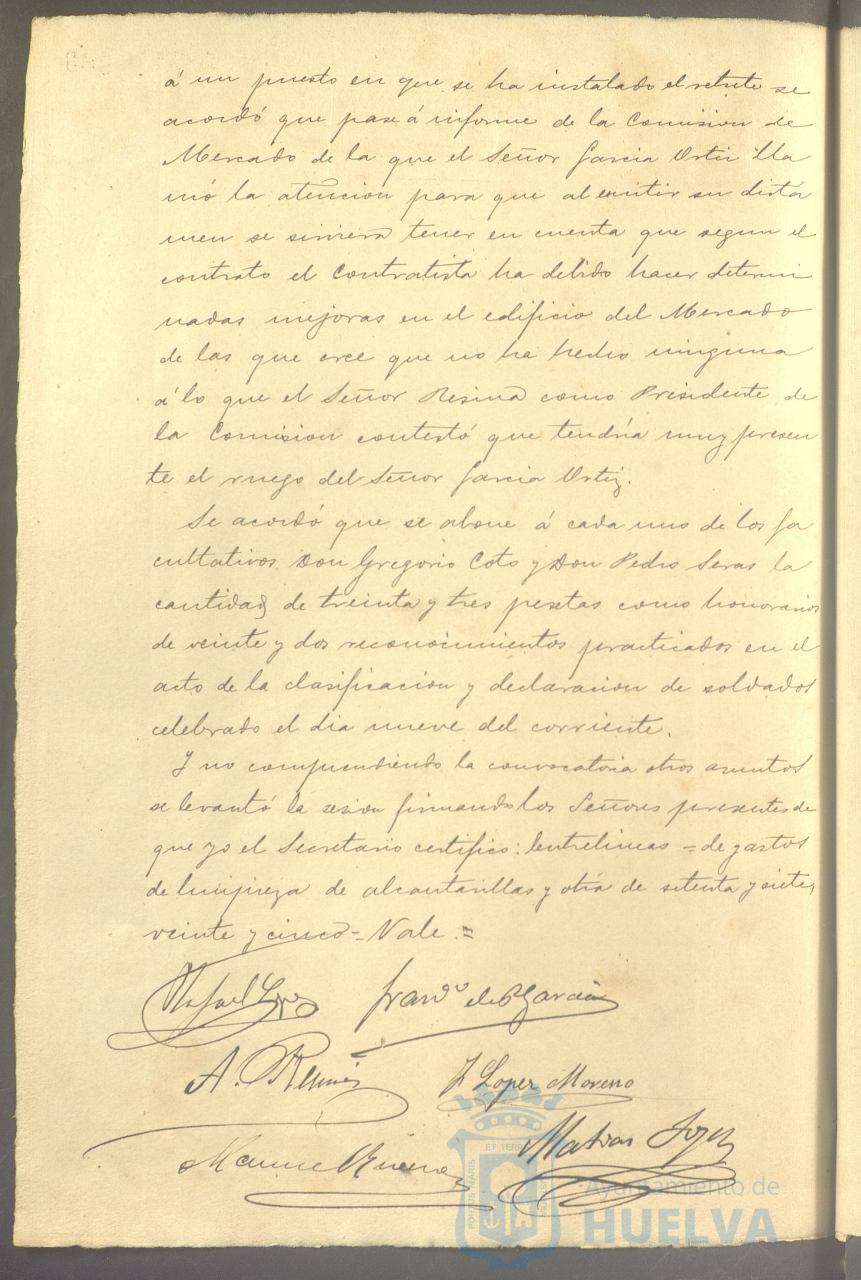 á un puesto en que se ha instalado el retrete se
acordó que pase á informe de la Comision de
Mercado de la que el Señor Garcia Ortiz lla
mó la atencion para que al emitir su dictá
men se sirviera tener en cuenta que segun el
contrato el Contratista ha debido hacer determi
nadas mejoras en el edificio del Mercado
de las que cree que no ha hecho ninguna
á lo que el Señor Resina como Presidente de
la Comision contestó que tendría muy presen
te el ruego del Señor Garcia Ortiz.
Se acordó que se abone á cada uno de los fa
cultativos Don Gregorio Coto y Don Pedro Seras la
cantidad de treinta y tres pesetas como honorarios
de veinte y dos reconocimientos practicados en el
acto de la clasificacion y declaracion de soldados
celebrado el dia nueve del corriente.
Y no comprendiendo la convocatoria otros asuntos
se levantó la sesion firmando los Señores presentes de
que yo el Secretario certifico: Entrelineas = de gastos
de limpieza de alcantarillas y otra de setenta y siete,
veinte y cinco = Vale =
Rafael Lopez Fran.co de P. Garcia
A. 
J. Lopez Moreno
Matias Lopez
ET TERR
PORTUS MARIS
Ayuntamiento de
HUELVA